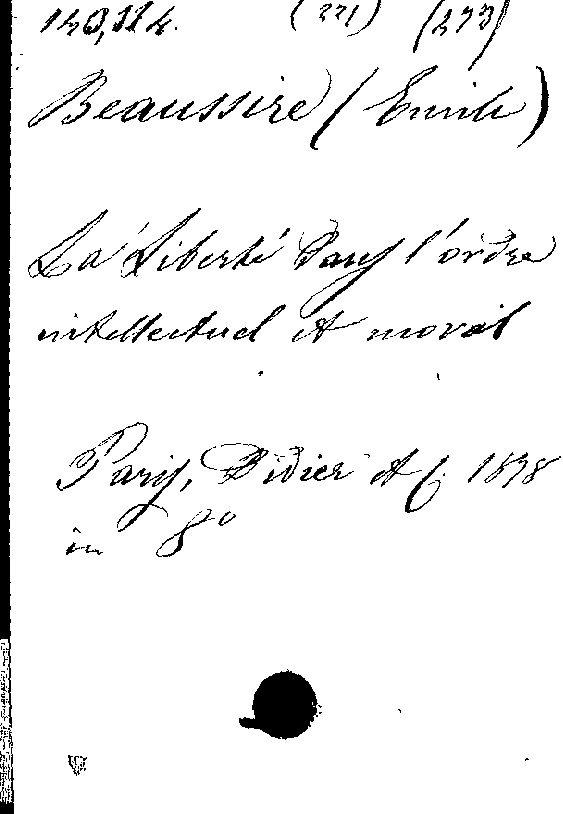 140,114. (221) (273)
Beaussire (Emile)
La Liberté dans l'ordre
intellectuel et moral
Paris, Didier et C. 1878
in 8°